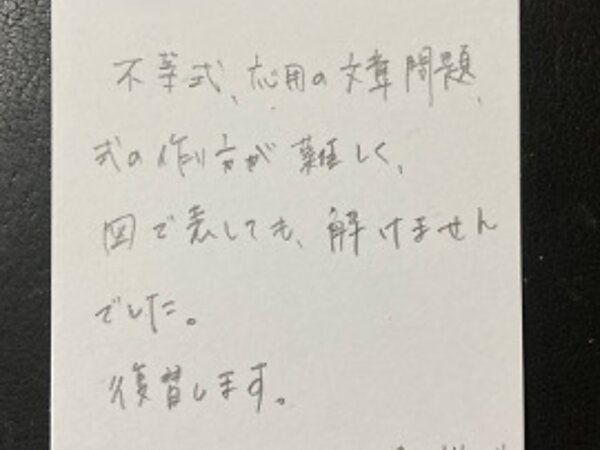 不等式、応用の文章問題、
式の作り方が難しく、
図で表しても、解けません
でした。
復習します。